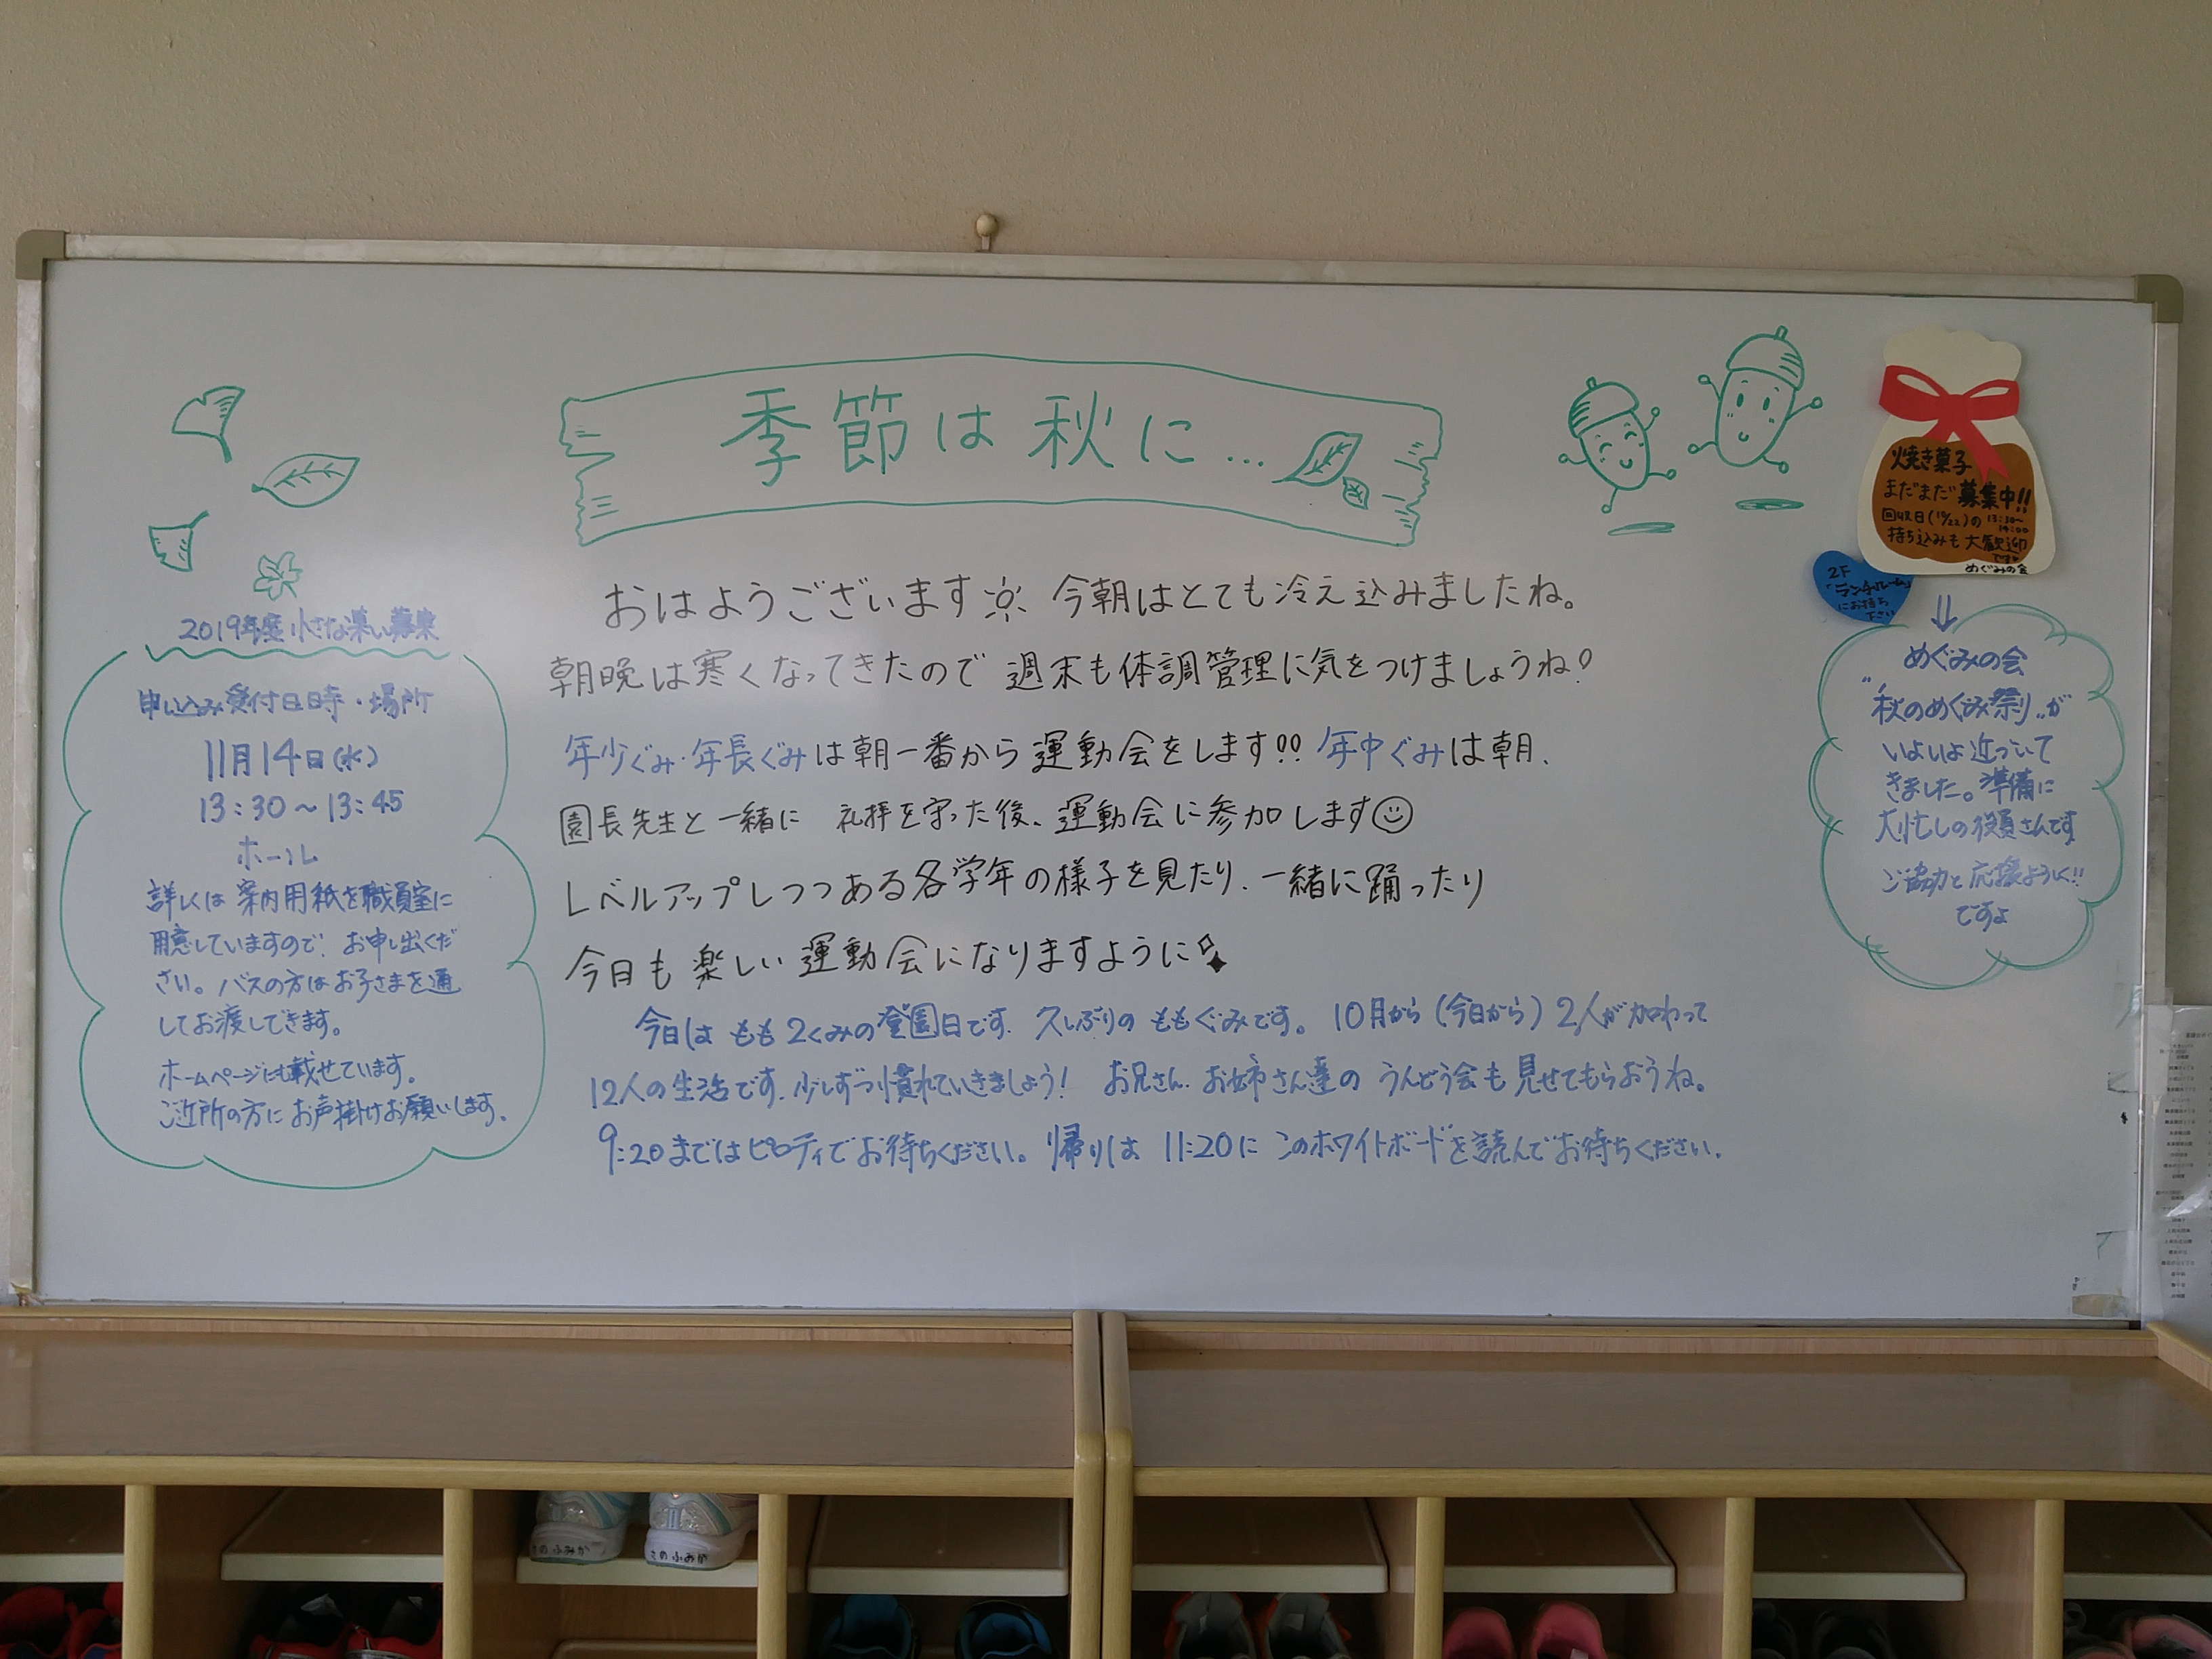 季節は秋に...
おはようございます 今朝はとても冷え込みましたね。
朝晩は寒くなってきたので 週末も体調管理に気をつけましょうね!
年少ぐみ・年長ぐみは朝一番から運動会をします!! 年中ぐみは朝、
園長先生と一緒に 礼拝を守った後、運動会に参加します
レベルアップしつつある各学年の様子を見たり、一緒に踊ったり
今日も楽しい運動会になりますように
今日は もも2くみの登園日です。久しぶりの ももぐみです。10月から(今日から)2人が加わって
12人の生活です。少しずつ慣れていきましょう! お兄さん、お姉さん達の うんどう会も見せてもらおうね。
9:20まではピロティでお待ちください。帰りは 11:20に このホワイトボードを読んでお待ちください。
2019年度 小さな楽しい募集
申し込み受付日時・場所
11月14日(水)
13:30〜13:45
ホール
詳しくは 案内用紙を職員室に
用意していますので、お申し出くだ
さい。バスの方はお子さまを通
してお渡しできます。
ホームページにも載せています。
ご近所の方に お声掛けお願いします。
焼き菓子
まだまだ募集中!!
回収日(10/22)の 13:30〜
14:00
持ち込みも大歓迎
です
めぐみの会
2F
「ランチルーム」
にお持ち
下さい
めぐみの会
"秋のめぐみ祭り"が
いよいよ近づいて
きました。準備に
大忙しの役員さんです
ご協力と応援よろしく!!
ですよ
さのふみか
さのふみか